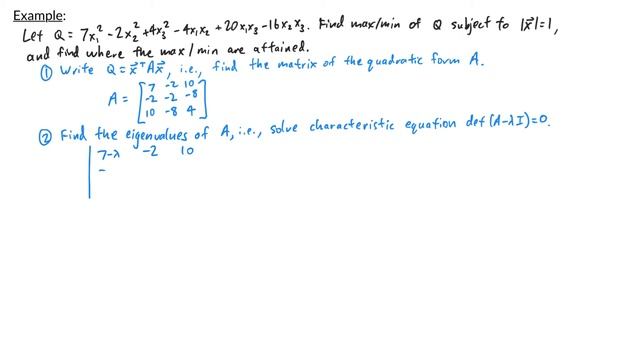 Example:
Let Q = 7x₁² - 2x₂² + 4x₃² - 4x₁x₂ + 20x₁x₃ - 16x₂x₃. Find max/min of Q subject to |x⃗| = 1,
and find where the max/min are attained.
① Write Q = x⃗ᵀAx⃗, i.e., find the matrix of the quadratic form A.
A = [ 7 -2 10
-2 -2 -8
10 -8 4 ]
② Find the eigenvalues of A, i.e., solve characteristic equation det(A-λI)=0.
| 7-λ -2 10
-